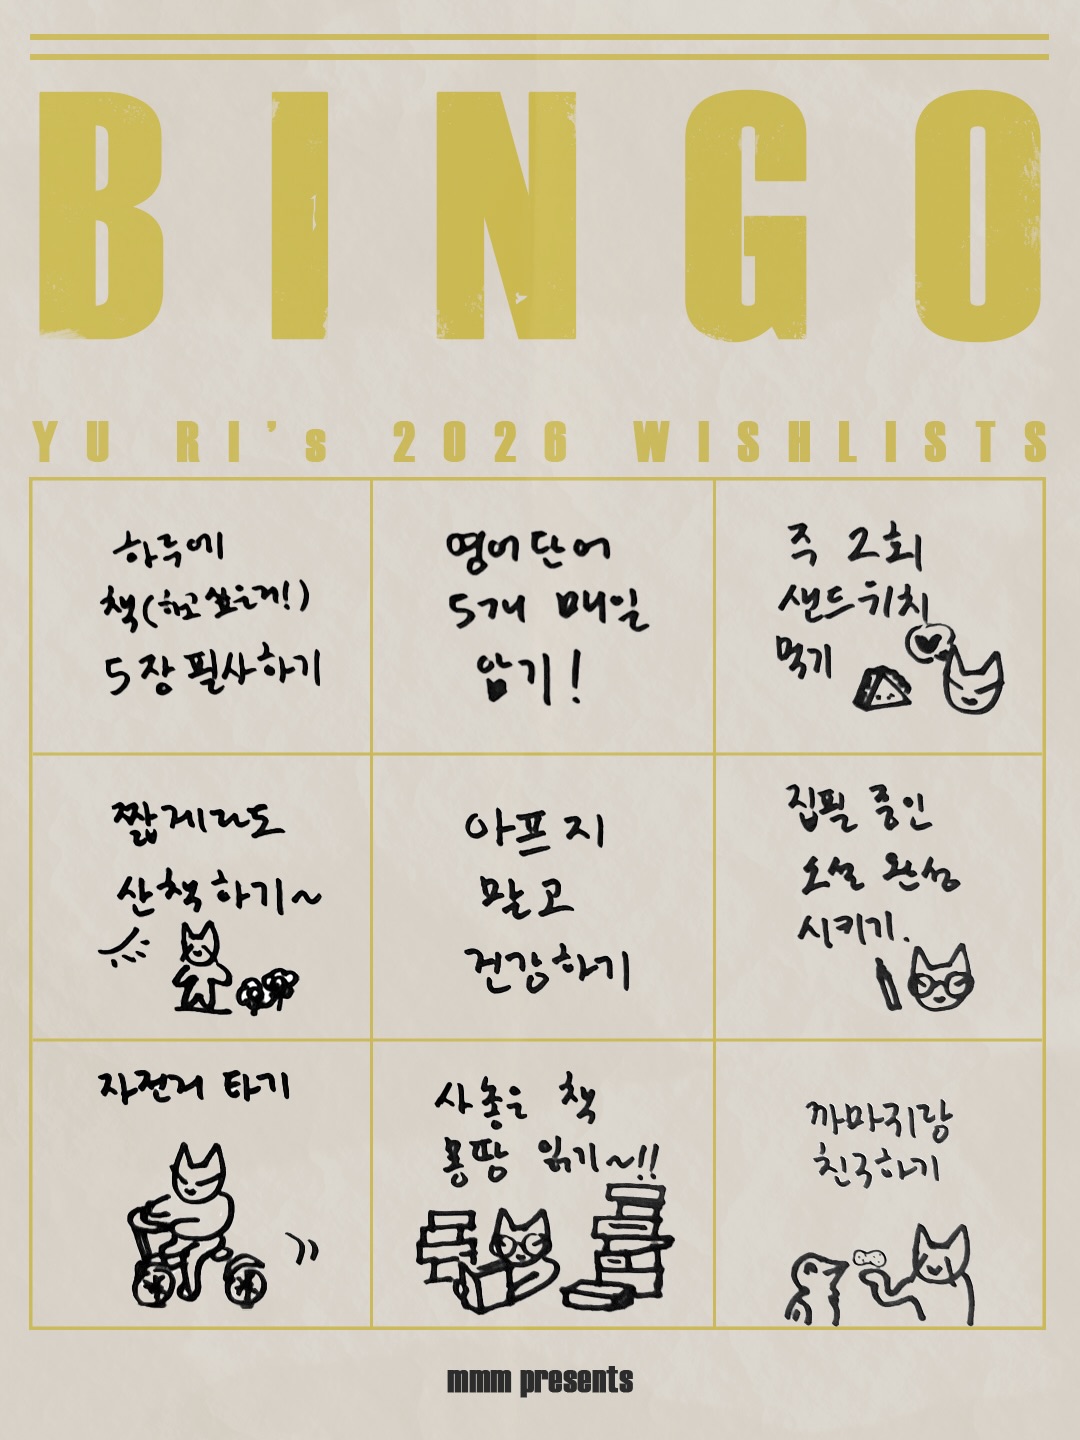 BINGO
YU RI's 2026 WISHLISTS
하루에
책(하고싶은거!)
5장 필사하기
영어단어
5개 매일
암기!
주 2회
샌드위치
먹기
짧게라도
산책하기~
아프지
말고
건강하기
집필 중인
소설 완성
시키기.
자전거 타기
사놓은 책
몽땅 읽기~!!
까마귀랑
친구하기
mmm presents